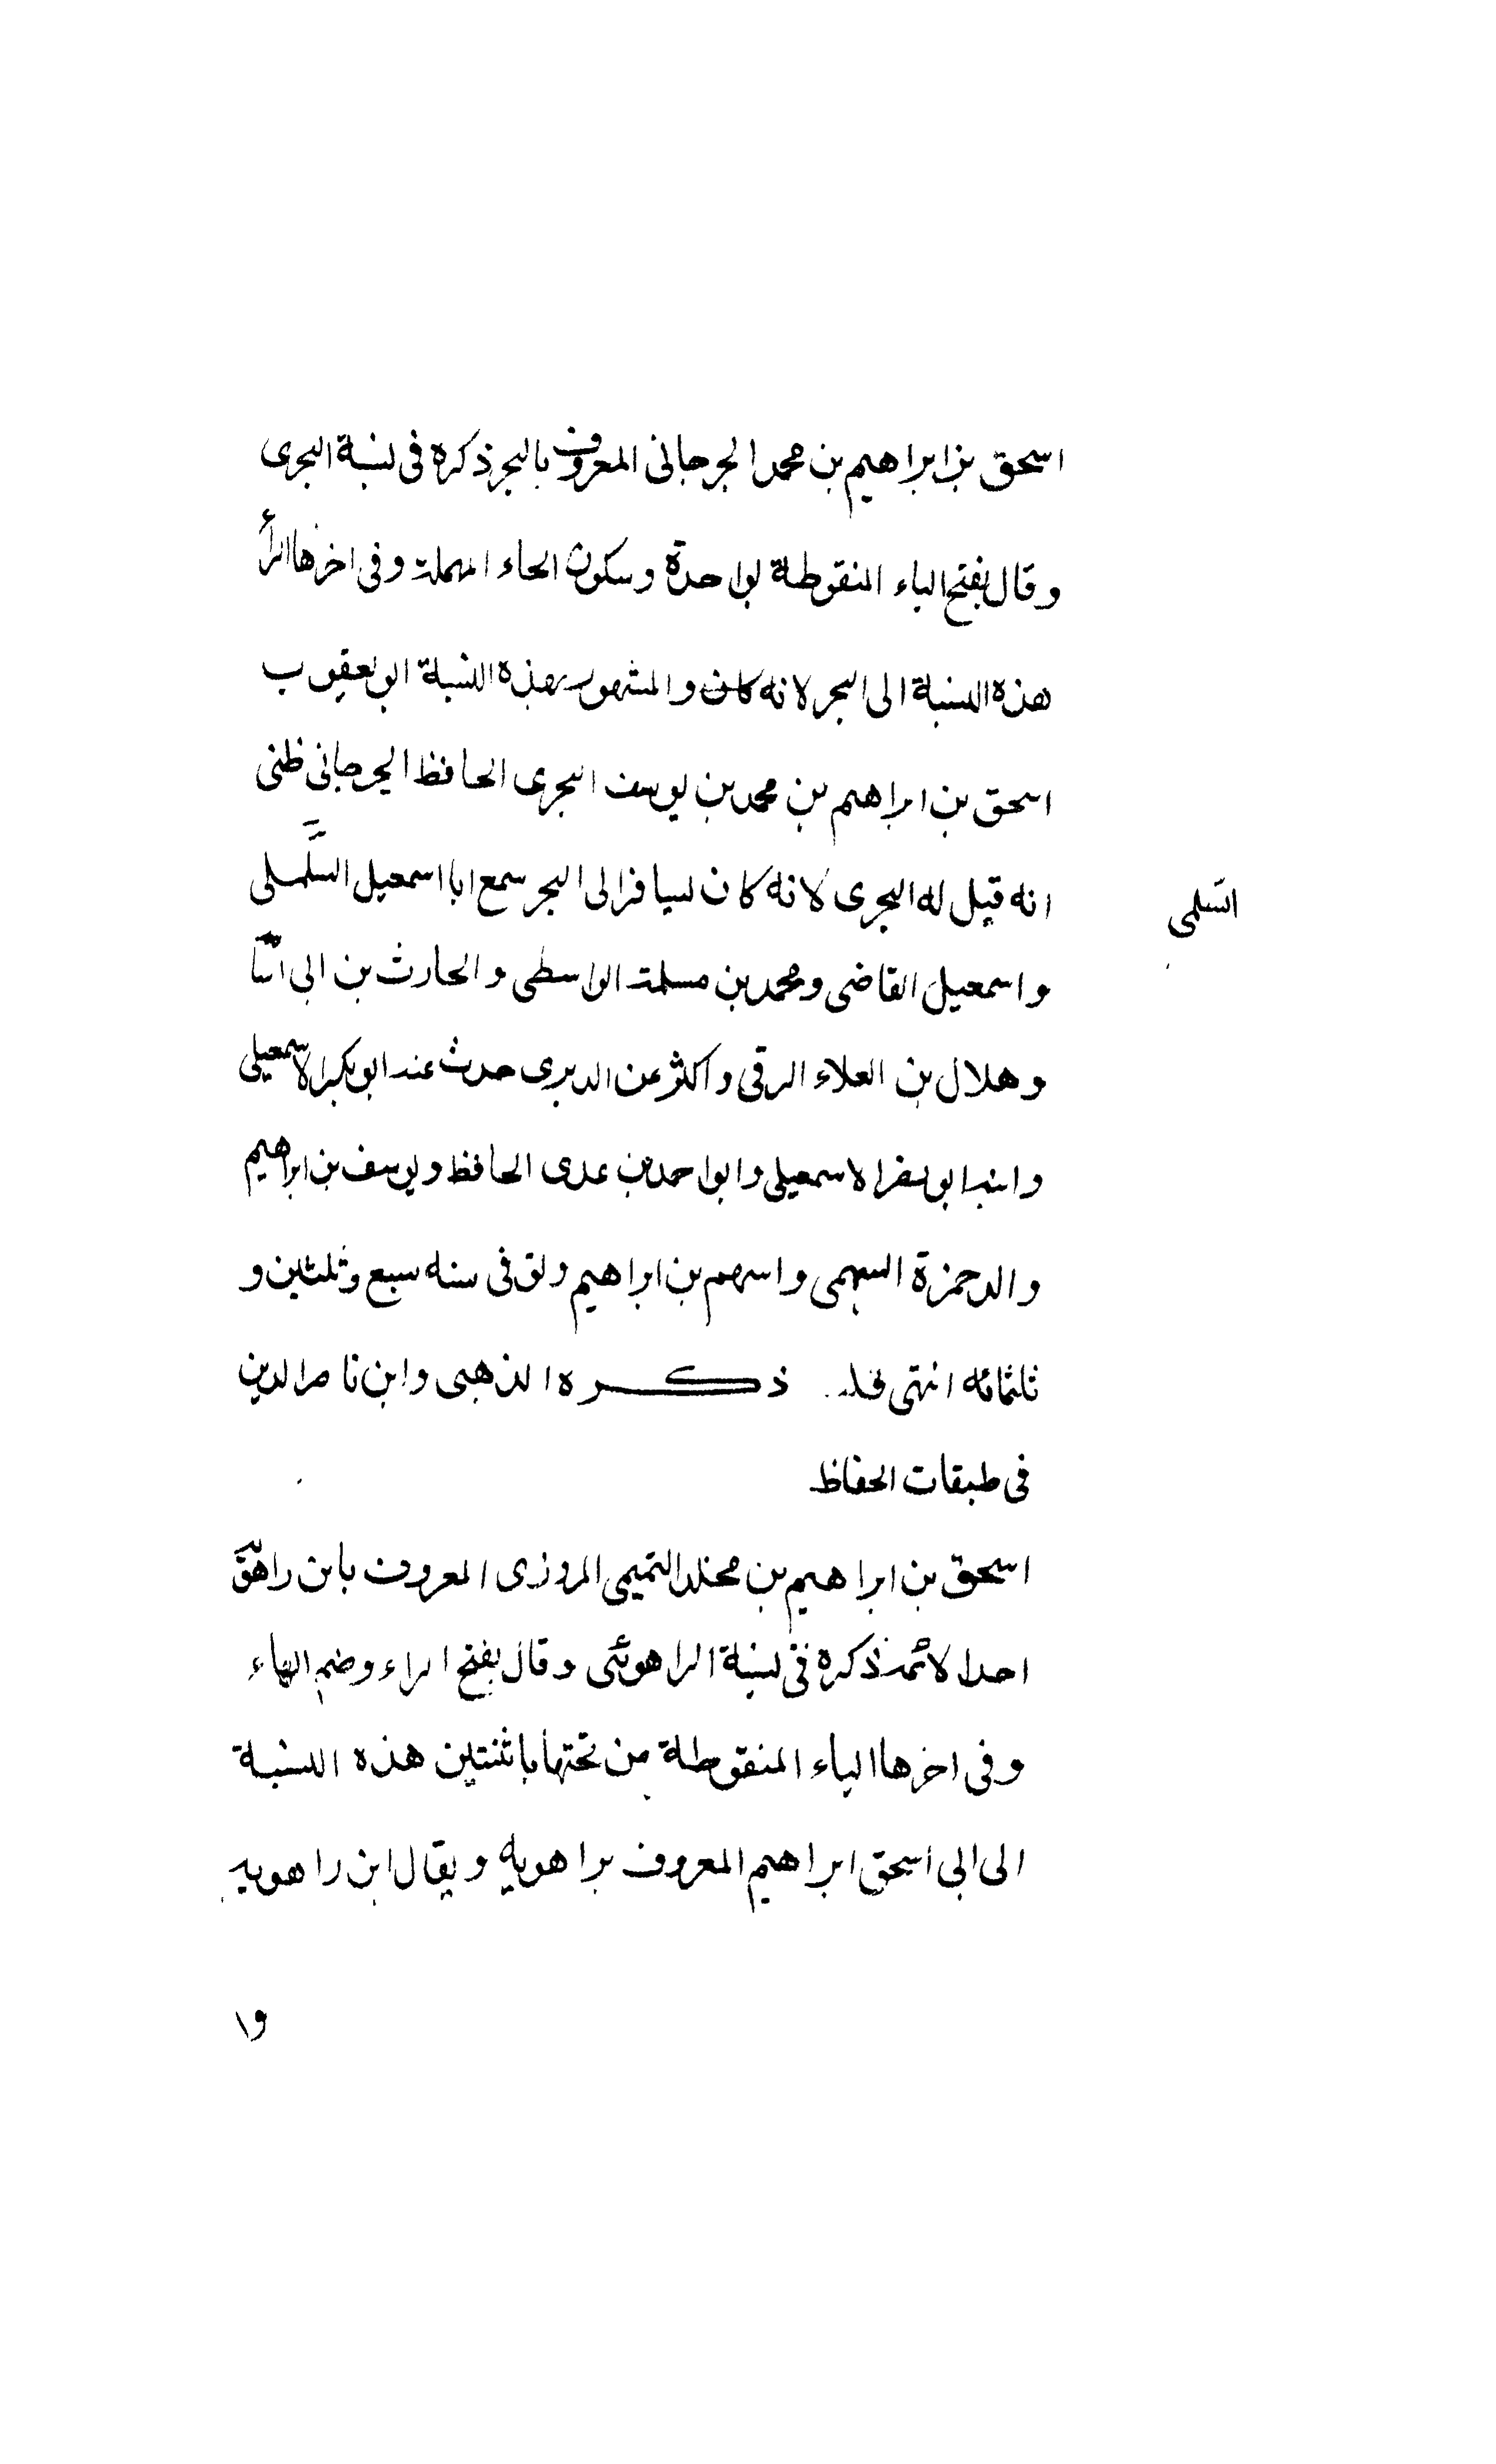 اسحق بن ابراهيم بن محمد الجرجانى المعروف بالبحر ذكره فى نسبة البحرى
وقال بفتح الباء المنقوطة بواحدة وسكون الحاء المهملة وفى اخرها الرأ
هذه النسبة الى البحر لانه كان والمشهور بهذه النسبة ابو يعقوب
اسحق بن ابراهيم بن محمد بن يوسف البحرى الحافظ الجرجانى ظنى
انه قيل له البحرى لانه كان يسافر الى البحر سمع ابا اسمعيل
السّلمى
واسمعيل القاضى ومحمد بن مسلمة الواسطى والحارث بن ابى
وهلال بن العلاء الرقى واكثر عن الدبرى حدث عنه ابو بكر الاسمعيلى
وابنه ابو الاسمعيلى وابو احمد بن عدى الحافظ ويوسف بن ابراهيم
والد حمزة السهمى واسهم بن ابراهيم فى سنه سبع وثلثين و
ثلثمائه انتهى ذكره الذهبى وابن ناصر الدين
فى طبقات الحفاظ
اسحق بن ابراهيم بن مخلد التميمى المروزى المعروف بابن
احد الائمة ذكره فى نسبة الراهوئى وقال بفتح الراء وضم الهاء
وفى اخرها الياء المنقوطة من تحتها باثنتين هذه النسبة
الى ابى اسحق ابراهيم المعروف براهويه ويقال ابن راهويه